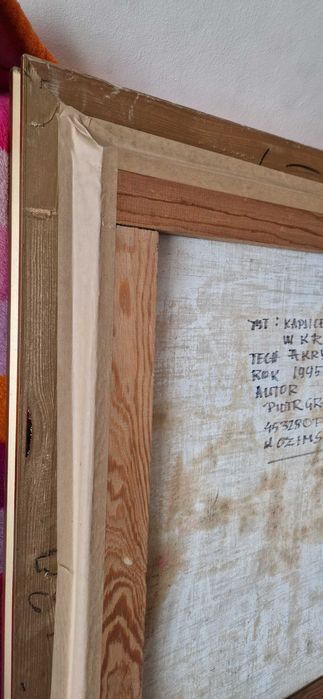 TYT : KAPLICE
W KR
TECH AKRY
ROK 1995
AUTOR
PIOTR GR
45328 OP